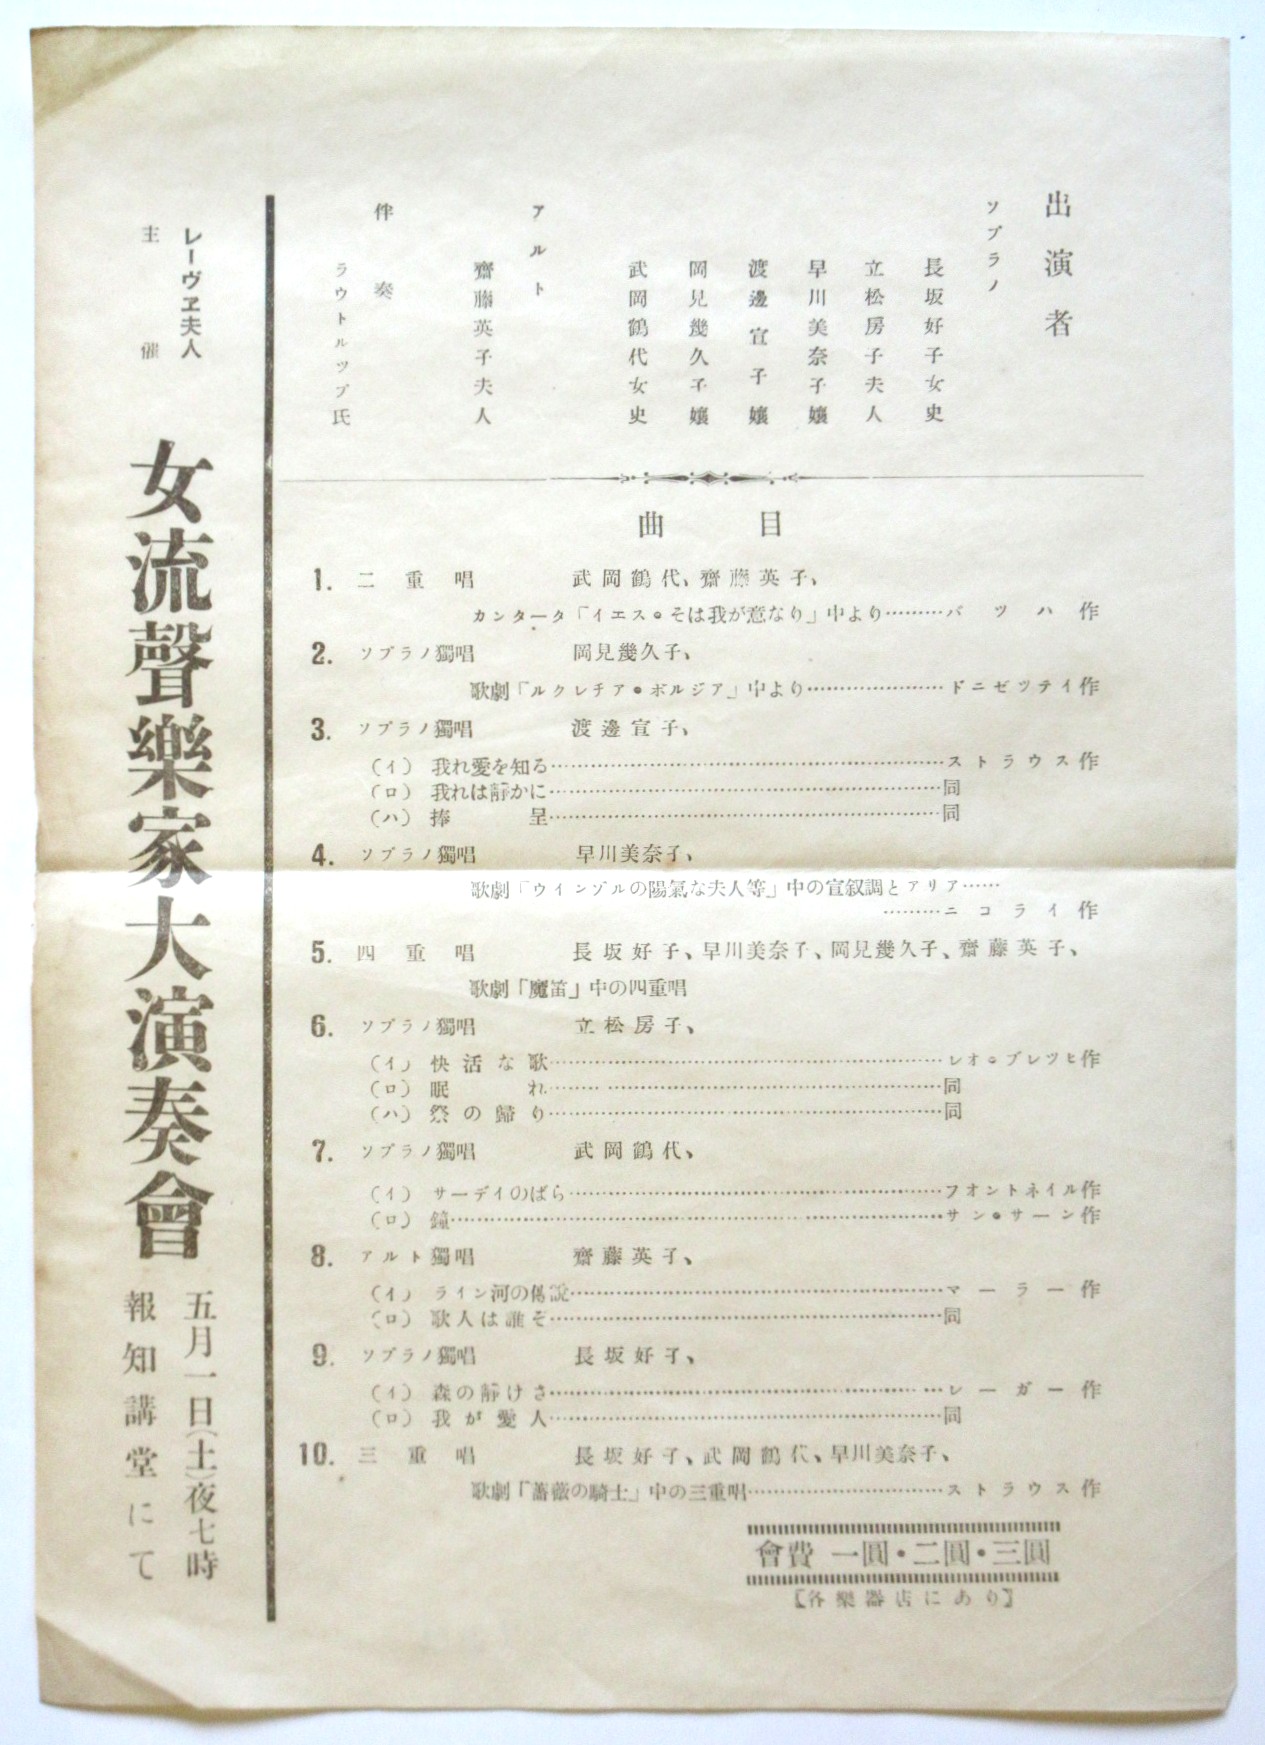 出演者
ソプラノ
長坂好子女史
立松房子夫人
早川美奈子孃
渡邊宣子孃
岡見幾久子孃
武岡鶴代女史
アルト
齋藤英子夫人
伴奏
ラウトルツプ氏
曲目
1. 二重唱 武岡鶴代、齋藤英子、
カンタータ「イエス・そは我が意なり」中より………バツハ作
2. ソプラノ獨唱 岡見幾久子、
歌劇「ルクレチア・ボルジア」中より…………………ドニゼツテイ作
3. ソプラノ獨唱 渡邊宣子、
(イ) 我れ愛を知る……………………………ストラウス作
(ロ) 我れは靜かに……………………………同
(ハ) 捧呈……………………………同
4. ソプラノ獨唱 早川美奈子、
歌劇「ウインゾルの陽氣な夫人等」中の宣叙調とアリア……
………ニコライ作
5. 四重唱 長坂好子、早川美奈子、岡見幾久子、齋藤英子、
歌劇「魔笛」中の四重唱
6. ソプラノ獨唱 立松房子、
(イ) 快活な歌……………………………レオ・ブレツヒ作
(ロ) 眠れ……………………………同
(ハ) 祭の歸り……………………………同
7. ソプラノ獨唱 武岡鶴代、
(イ) サーデイのばら……………………………フオントネイル作
(ロ) 鐘……………………………サン・サーン作
8. アルト獨唱 齋藤英子、
(イ) ライン河の傳説……………………………マーラー作
(ロ) 歌人は誰そ……………………………同
9. ソプラノ獨唱 長坂好子、
(イ) 森の靜けさ……………………………レーガー作
(ロ) 我が愛人……………………………同
10. 三重唱 長坂好子、武岡鶴代、早川美奈子、
歌劇「薔薇の騎士」中の三重唱…………………………ストラウス作
會費 一圓・二圓・三圓
【各樂器店にあり】
レーヴヱ夫人
主催
女流聲樂家大演奏會
五月一日(土)夜七時
報知講堂にて